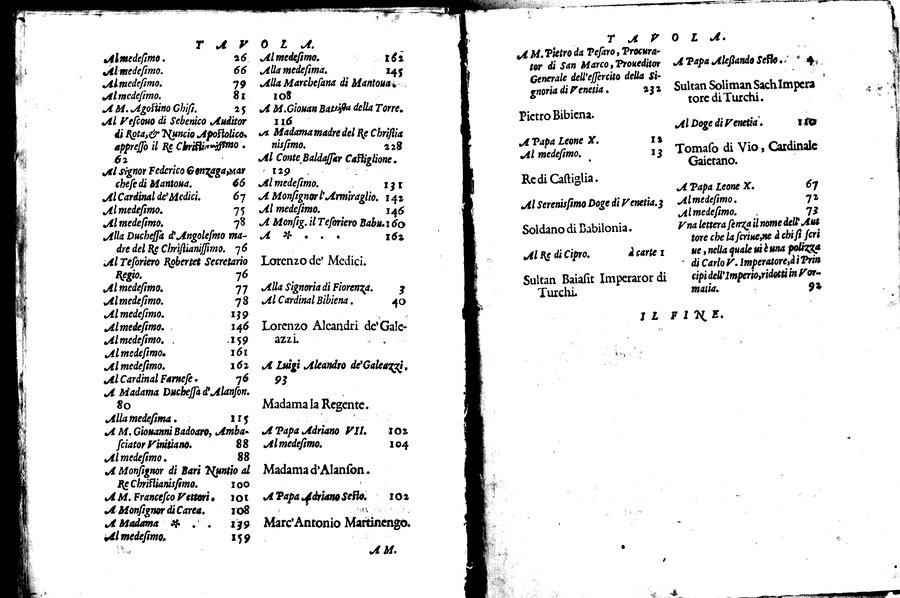 TAVOLA.
Al medesimo. 26
Al medesimo. 66
Al medesimo. 79
Al medesimo. 81
A M. Agostino Ghisi. 25
Al Vescouo di Sebenico Auditor
di Rota, & Nuncio Apostolico.
appresso il Re Christianissimo.
62
Al Signor Federico Gonzaga, Mar
chese di Mantoua. 66
Al Cardinal de' Medici. 67
Al medesimo. 75
Al medesimo. 78
Alla Duchessa d'Angolesmo ma-
dre del Re Christianissimo. 76
Al Tesoriero Robertet Secretario
Regio. 76
Al medesimo. 77
Al medesimo. 78
Al medesimo. 139
Al medesimo. 146
Al medesimo. 159
Al medesimo. 161
Al medesimo. 162
Al Cardinal Farnese. 76
A Madama Duchessa d'Alanson.
80
Alla medesima. 115
A M. Giouanni Badoaro, Amba-
sciator Vinitiano. 88
Al medesimo. 88
A Monsignor di Bari Nuntio al
Re Christianissimo. 100
A M. Francesco Vettori. 101
A Monsignor di Carea. 108
A Madama * . . 139
Al medesimo. 159
Al medesimo. 162
Alla medesima. 145
Alla Marchesana di Mantoua.
108
A M. Giouan Battista della Torre.
116
A Madama madre del Re Christia
nissimo. 228
Al Conte Baldassar Castiglione.
129
Al medesimo. 131
A Monsignor l'Armiraglio. 142
Al medesimo. 146
A Monsig. il Tesoriero Babu. 160
A * . . . 162
Lorenzo de' Medici.
Alla Signoria di Fiorenza. 3
Al Cardinal Bibiena. 40
Lorenzo Aleandri de' Gale-
azzi.
A Luigi Aleandro de' Galeazzi.
93
Madama la Regente.
A Papa Adriano VII. 102
Al medesimo. 104
Madama d'Alanson.
A Papa Adriano Sesto. 102
Marc'Antonio Martinengo.
A M.
TAVOLA.
A M. Pietro da Pesaro, Procura-
tor di San Marco, Proueditor
Generale dell'essercito della Si-
gnoria di Venetia. 232
Pietro Bibiena.
A Papa Leone X. 12
Al medesimo. 13
Re di Castiglia.
Al Serenissimo Doge di Venetia. 3
Soldano di Babilonia.
Al Re di Cipro. à carte 1
Sultan Baiasit Imperaror di
Turchi.
A Papa Alessando Sesto. 4
Sultan Soliman Sach Impera
tore di Turchi.
Al Doge di Venetia. 110
Tomaso di Vio, Cardinale
Gaietano.
A Papa Leone X. 67
Al medesimo. 72
Al medesimo. 73
Vna lettera senza il nome dell'Aut
tore che la scriue, ne à chi si scri
ue, nella quale ui è una polizza
di Carlo V. Imperatore, à i Prin
cipi dell'Imperio, ridotti in Vor-
matia. 92
IL FINE.